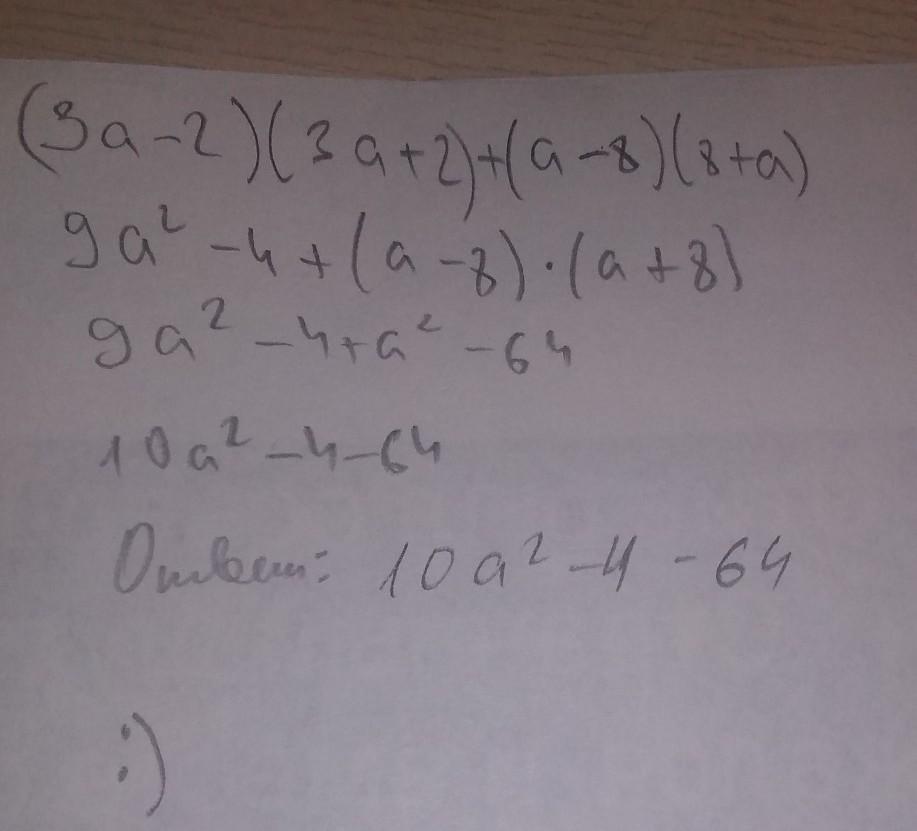 (3a-2)(3a+2)+(a-8)(8+a)
9a² -4+(a-8)·(a+8)
9a² -4+a² -64
10a² -4-64
Ответ: 10a² -4 -64
:)